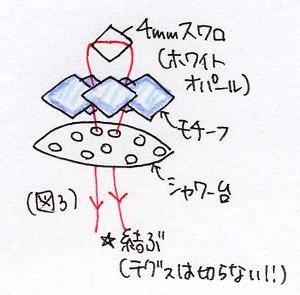 4mmスワロ
(ホワイト
オパール)
モチーフ
シャワー台
(図3)
☆結ぶ
(テグスは切らない!!)